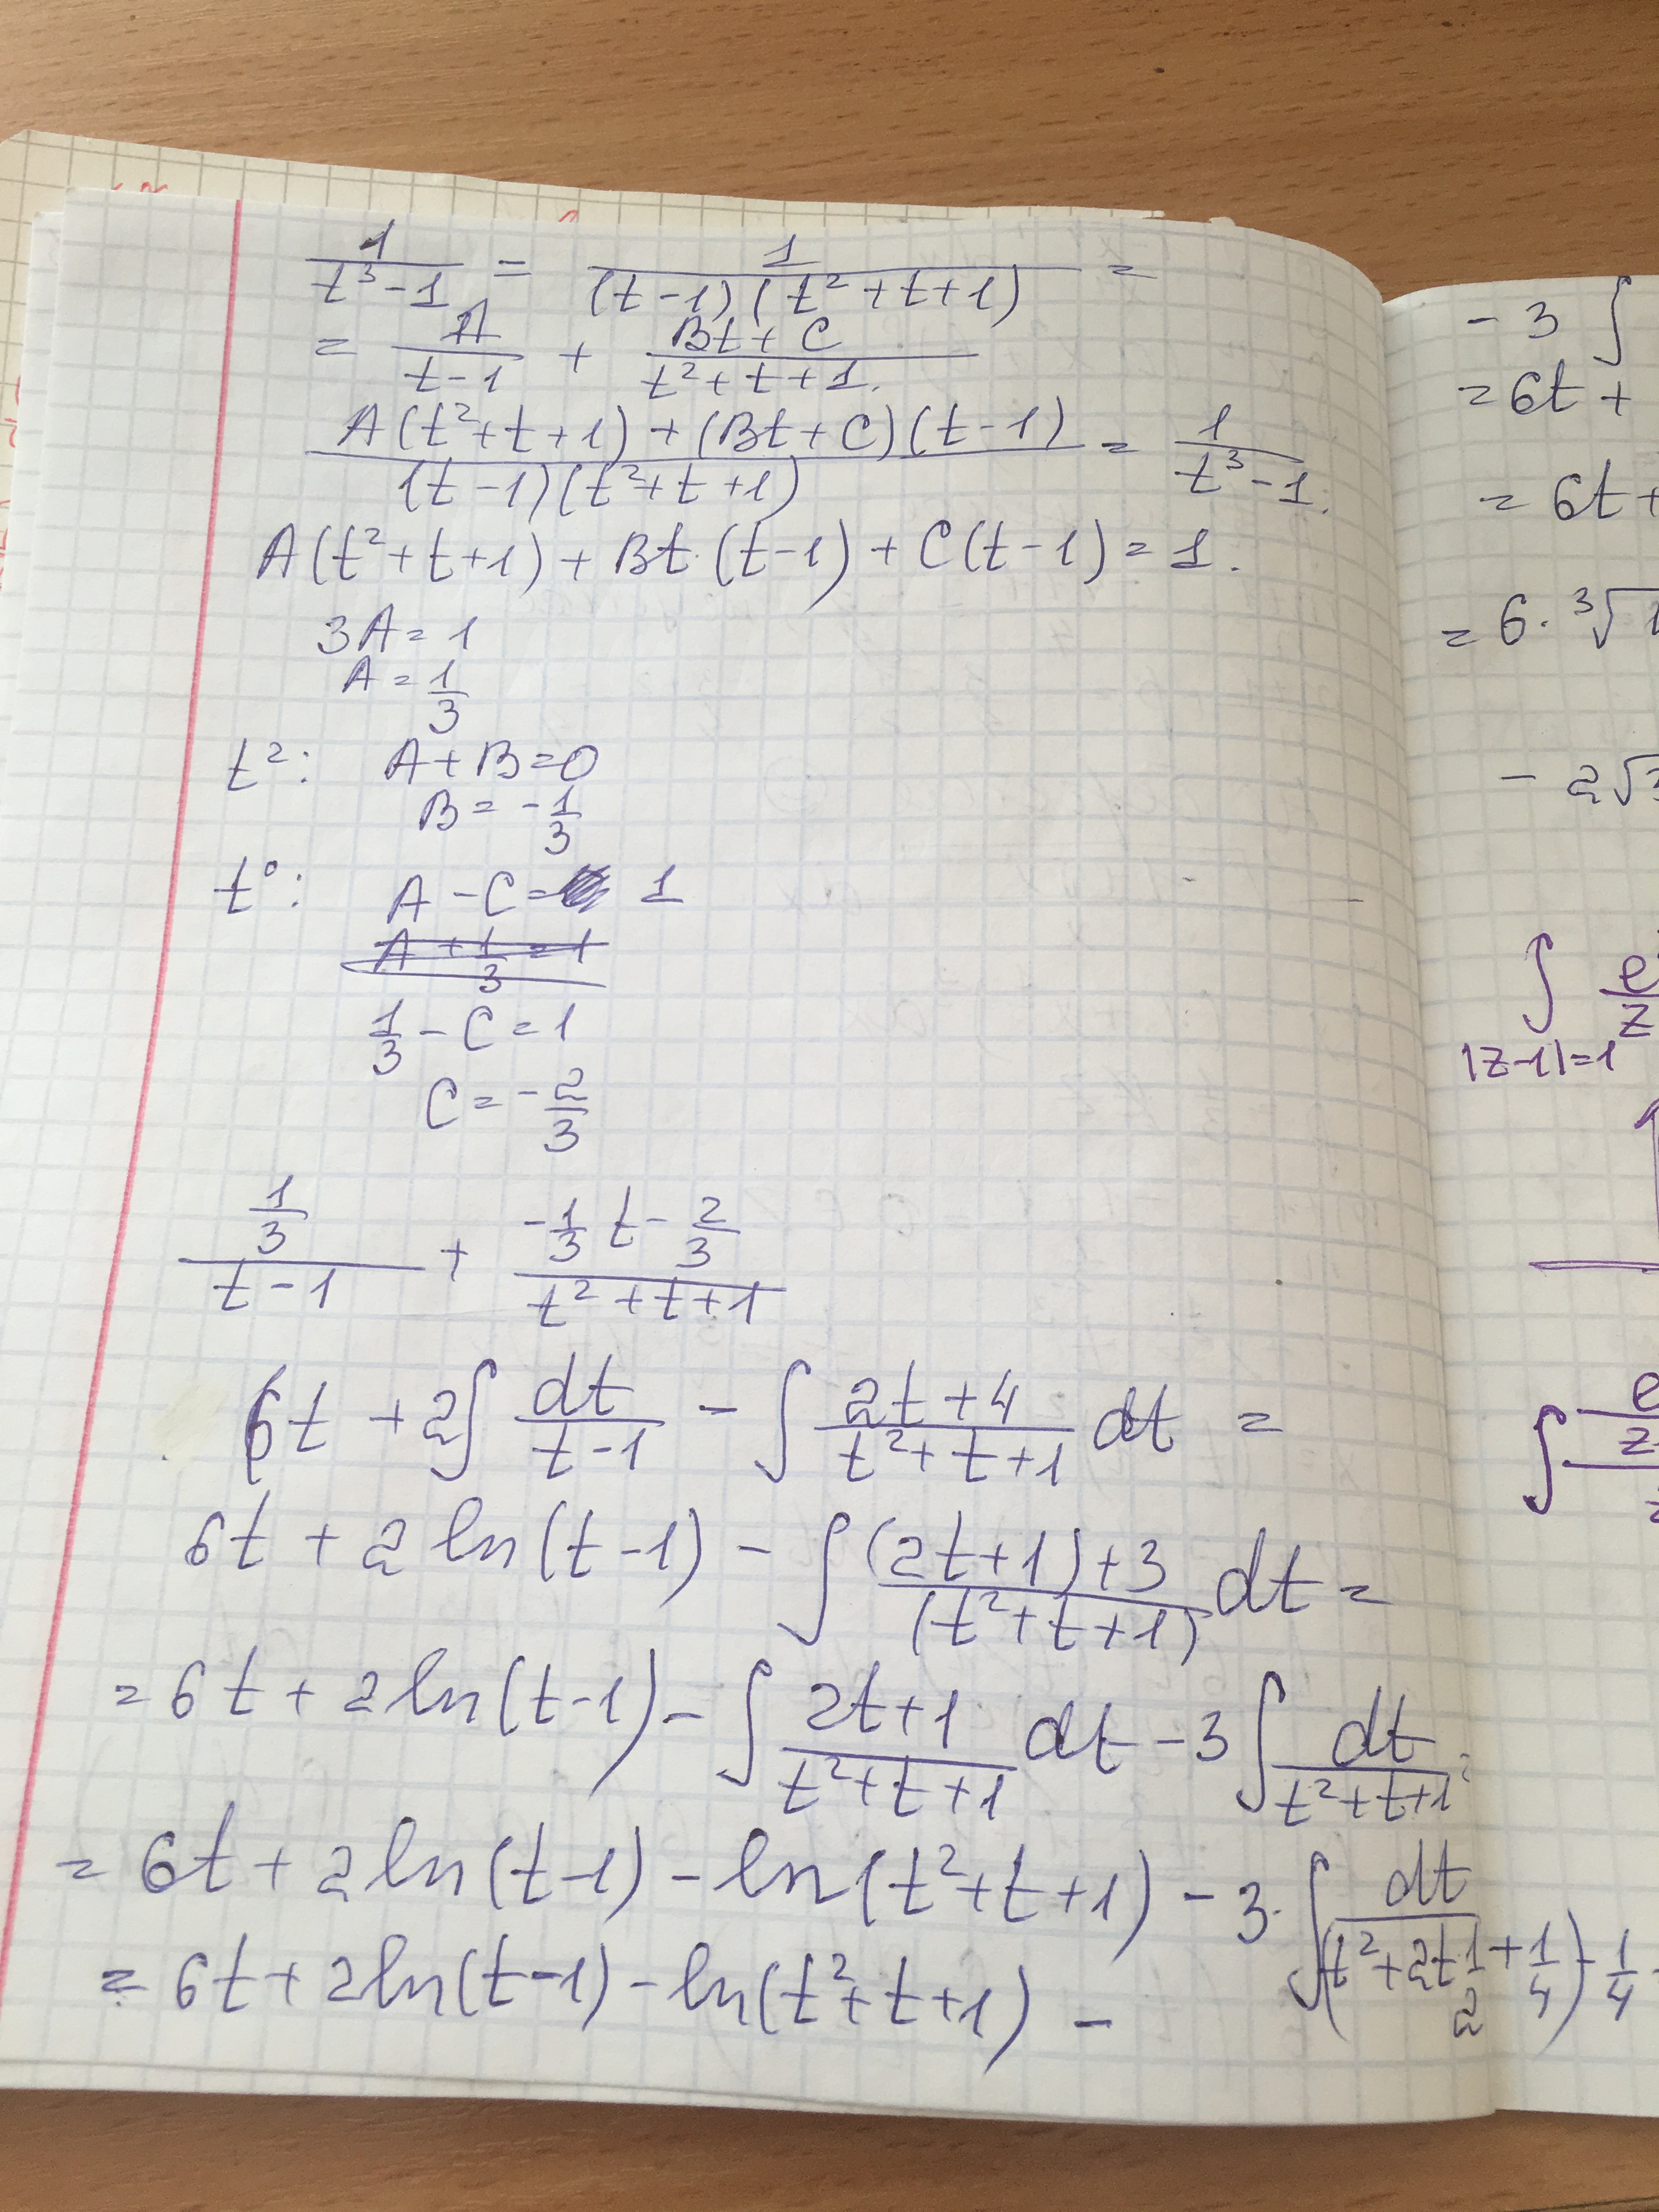 1/(t³-1) = 1/((t-1)(t²+t+1)) =
= A/(t-1) + (Bt+C)/(t²+t+1).
(A(t²+t+1)+(Bt+C)(t-1))/((t-1)(t²+t+1)) = 1/(t³-1).
A(t²+t+1)+Bt·(t-1)+C(t-1)=1.
3A=1
A=1/3
t²: A+B=0
B=-1/3
t⁰: A-C= 1
A+1/3=1
1/3-C=1
C=-2/3
(1/3)/(t-1) + (-1/3 t - 2/3)/(t²+t+1)
6t +2∫ dt/(t-1) - ∫ (2t+4)/(t²+t+1) dt =
6t + 2 ln(t-1) - ∫ ((2t+1)+3)/(t²+t+1) dt =
= 6t + 2 ln(t-1) - ∫ (2t+1)/(t²+t+1) dt - 3∫ dt/(t²+t+1)
= 6t + 2 ln(t-1) - ln(t²+t+1) - 3·∫ dt/((t²+2t 1/2 + 1/4) - 1/4
= 6t + 2ln(t-1) - ln(t²+t+1) -
- 3 ∫
= 6t +
= 6t +
= 6· ³√
- 2√3
∫ e/z
|z-1|=1
∫ e/z